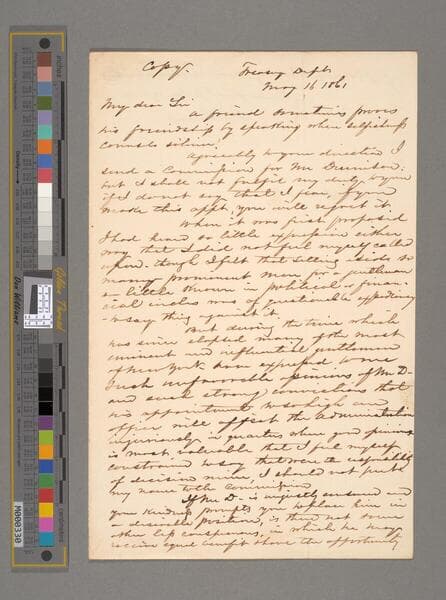 Copy.
Treasury Dept
May 16 1861
My dear Sir
A friend sometimes proves
his friendship by speaking when selfishness
counsels silence.
Agreeably to your direction I
send a Commission for Mr Dennison,
but I shall not fulfil my duty to you
if I do not say that I fear, if you
make this appt, you will regret it.
When it was first proposed
I had heard so little expression either
way that I did not feel myself called
upon, though I felt that setting aside so
many prominent men for a gentleman
so little known in political or finan-
cial circles was of questionable expediency
to say thing against it.
But during the time which
has since elapsed many of the most
eminent and influential gentlemen
of New York have expressed to me
such unfavorable opinions of Mr D-
and such strong convictions that
his appointment to so high an
office will affect the Administration
injuriously in quarters whose good opinion
is most valuable that I feel myself
constrained to say that were the responsibility
of decision mine I should not put
my name to the commission
If Mr D- is unjustly censured and
your kindness prompts you to place him in
a desirable position, is there not some
other less conspicuous, in which he may
receive equal benefit & have the opportunity
inches
centimeters
Golden Thread
Don Williams
M000330